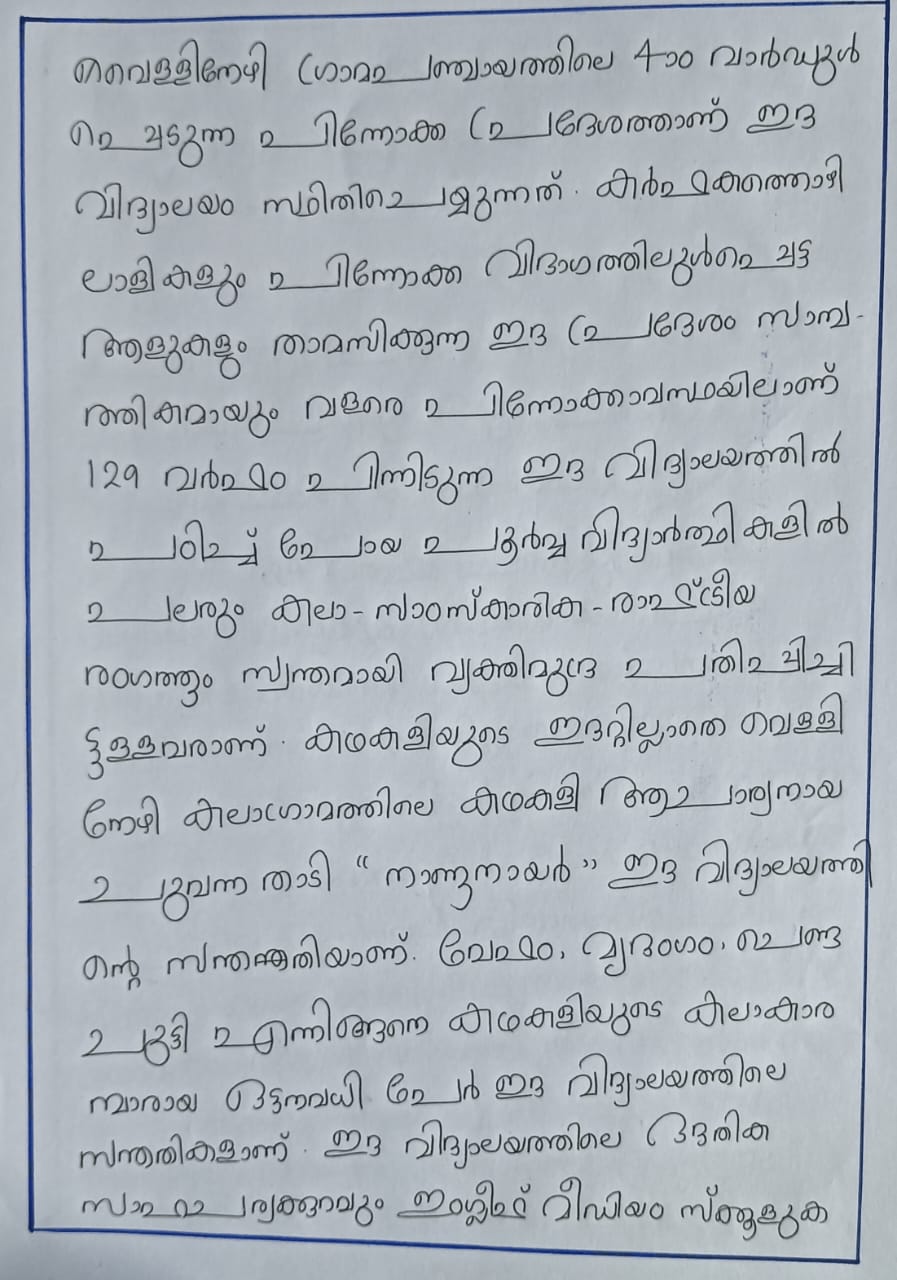 വെള്ളിനേഴി ഗ്രാമപഞ്ചായത്തിലെ 4-ാം വാർഡുൾ
പ്പെടുന്ന പിന്നോക്ക പ്രദേശത്താണ് ഈ
വിദ്യാലയം സ്ഥിതിചെയ്യുന്നത്. കർഷകത്തൊഴി
ലാളികളും പിന്നോക്ക വിഭാഗത്തിലുൾപ്പെട്ട
ആളുകളും താമസിക്കുന്ന ഈ പ്രദേശം സാമ്പ-
ത്തികമായും വളരെ പിന്നോക്കാവസ്ഥയിലാണ്
129 വർഷം പിന്നിടുന്ന ഈ വിദ്യാലയത്തിൽ
പഠിച്ച് പോയ പൂർവ്വ വിദ്യാർത്ഥികളിൽ
പലരും കലാ-സാംസ്കാരിക-രാഷ്ട്രീയ
രംഗത്തും സ്വന്തമായി വ്യക്തിമുദ്ര പതിപ്പിച്ചി
ട്ടുള്ളവരാണ്. കഥകളിയുടെ ഈറ്റില്ലാതെ വെള്ളി
നേഴി കലാഗ്രാമത്തിലെ കഥകളി ആചാര്യനായ
ചുവന്ന താടി "നാണുനായർ" ഈ വിദ്യാലയത്തി
ന്റെ സന്തതിയാണ്. വേഷം, മൃദംഗം, ചെണ്ട
ചുട്ടി എന്നിങ്ങനെ കഥകളിയുടെ കലാകാര
ന്മാരായ ഒട്ടനവധി പേർ ഈ വിദ്യാലയത്തിലെ
സന്തതികളാണ്. ഈ വിദ്യാലയത്തിലെ ഭൗതിക
സാഹചര്യക്കുറവും ഇംഗ്ലീഷ് മീഡിയം സ്ക്കൂളുക